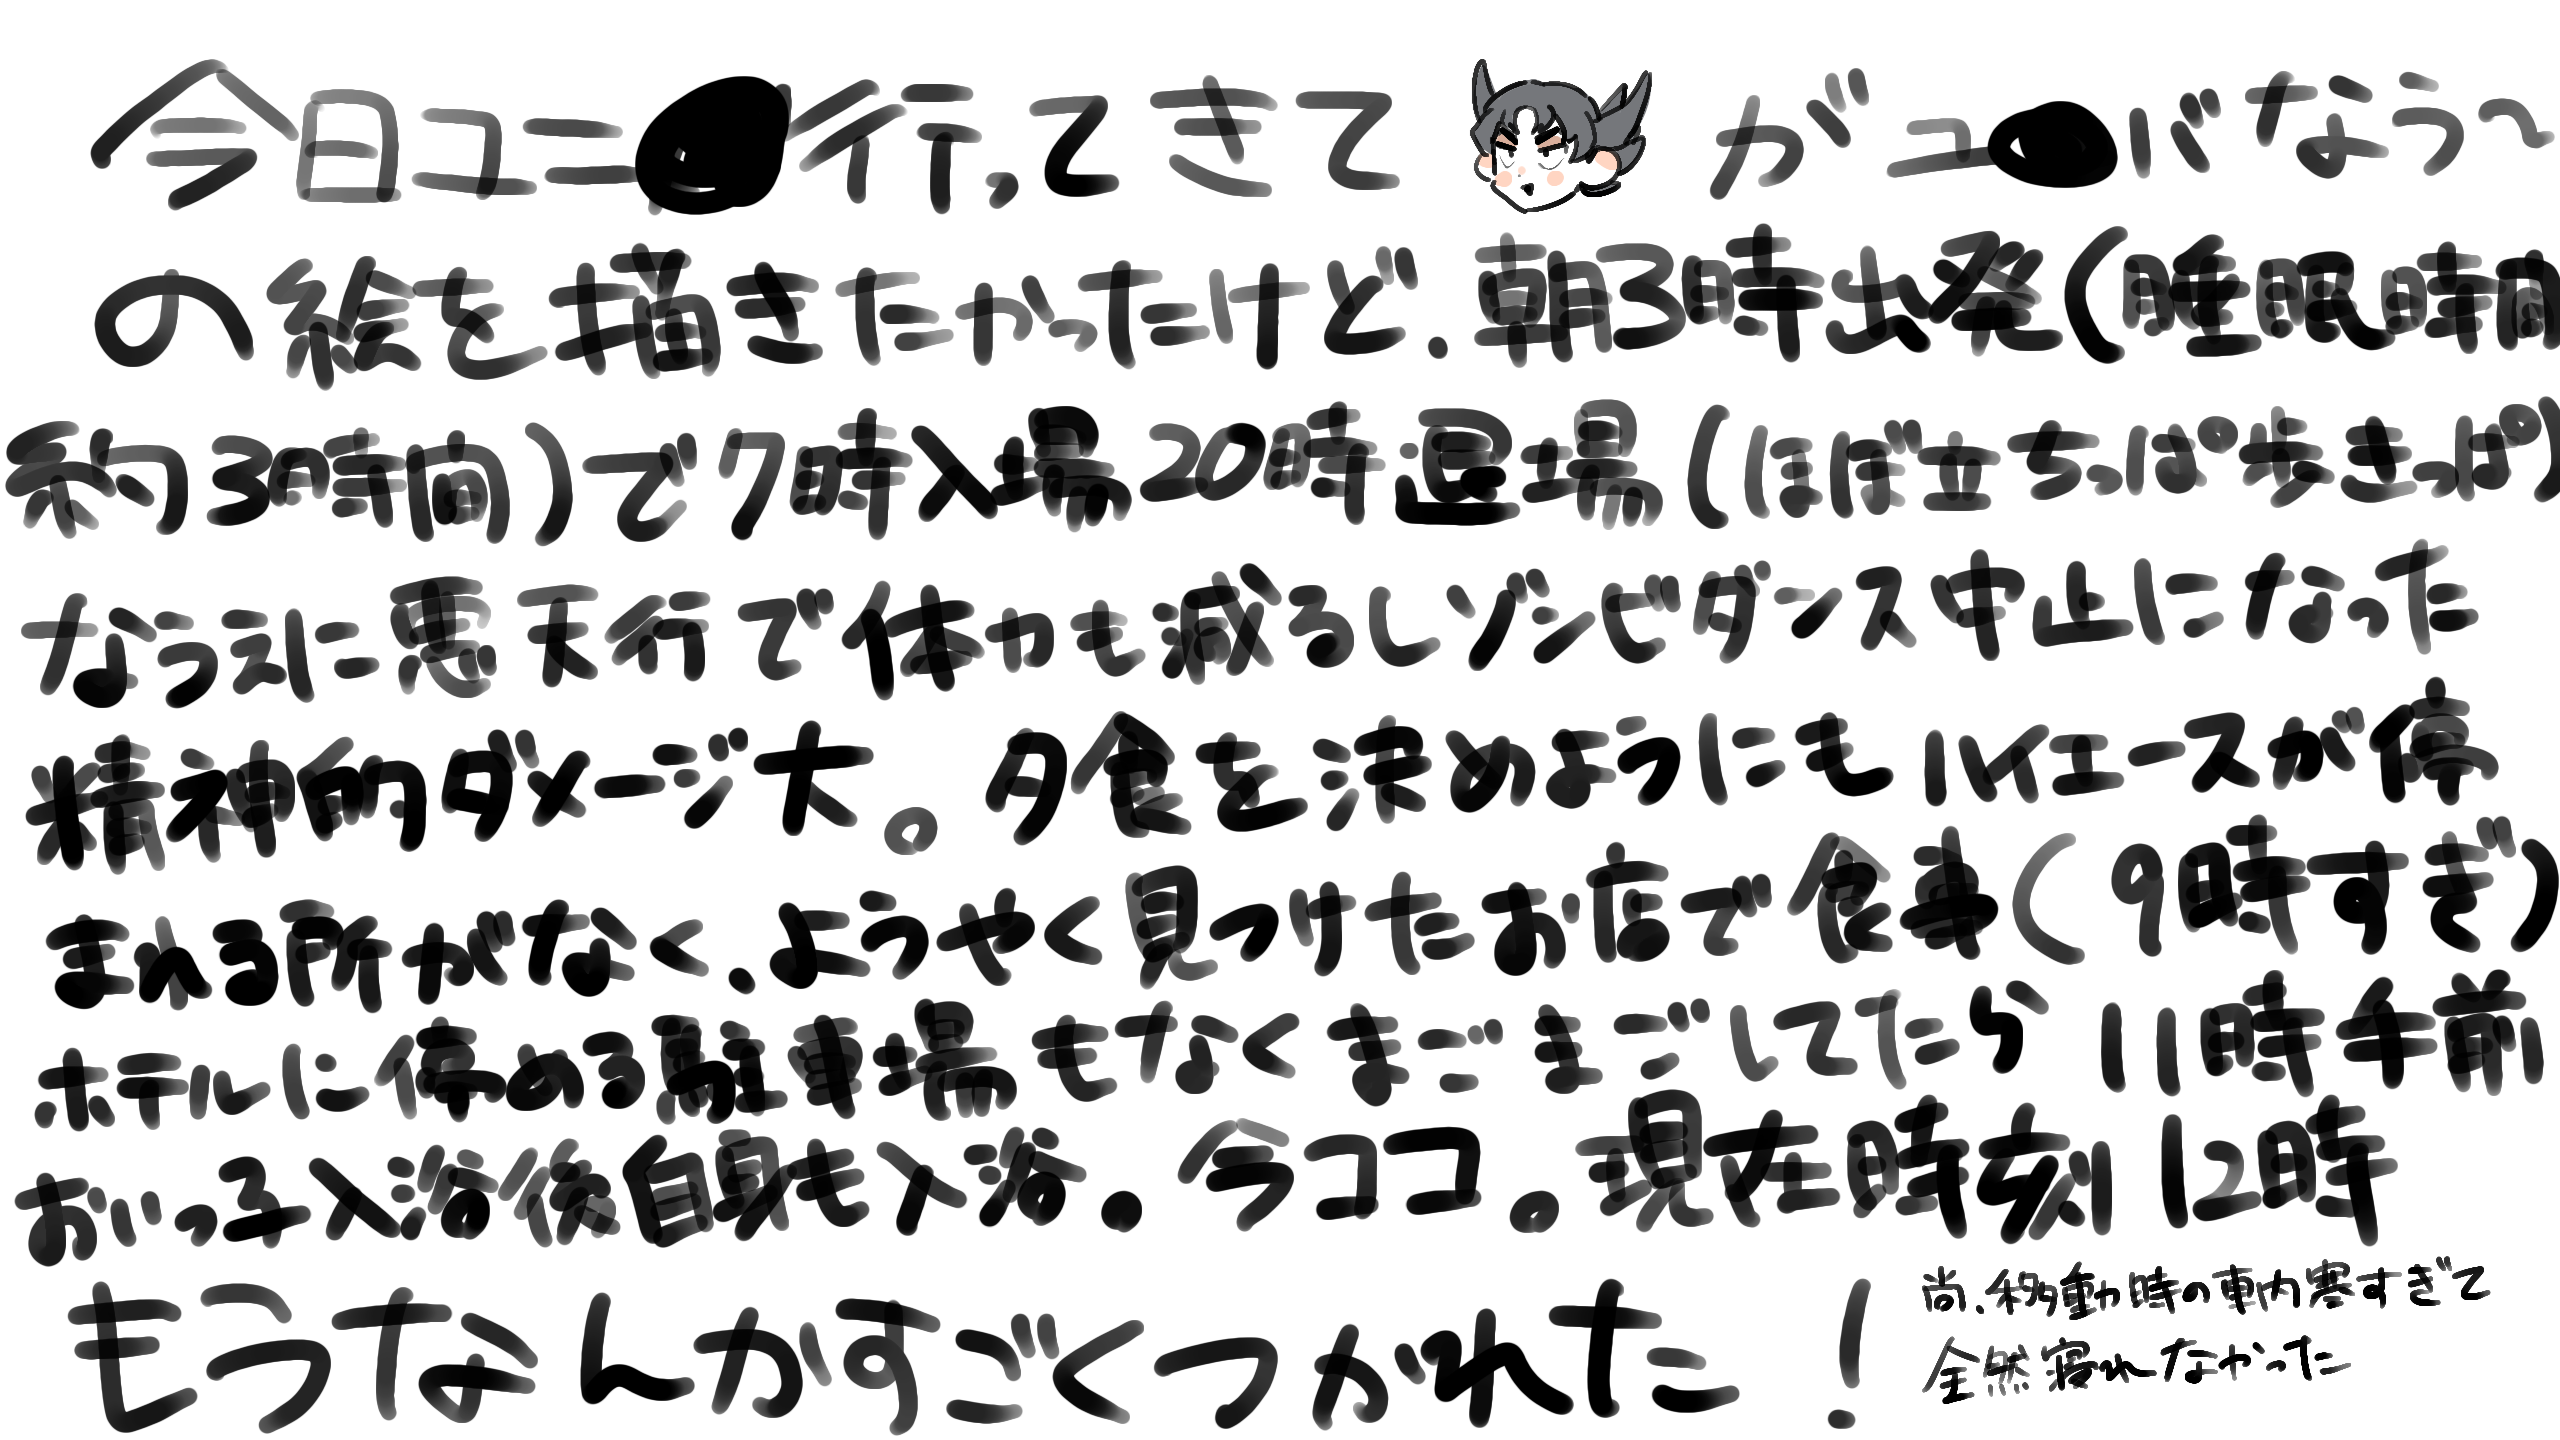 今日ユニ 行ってきて がユ バなう〜
の絵を描きたかったけど、朝3時出発(睡眠時間
約3時間)で7時入場20時退場(ほぼ立ちっぱ歩きっぱ)
なうえに悪天行で体力も減るしゾンビダンス中止になった
精神的ダメージ大。夕食を決めようにもハイエースが停
まれる所がなく、ようやく見つけたお店で食事(9時すぎ)
ホテルに停める駐車場もなくまごまごしてたら11時手前
おいっ子入浴後自身も入浴。今ココ。現在時刻12時
もうなんかすごくつかれた!
尚、移動時の車内寒すぎて
全然寝れなかった